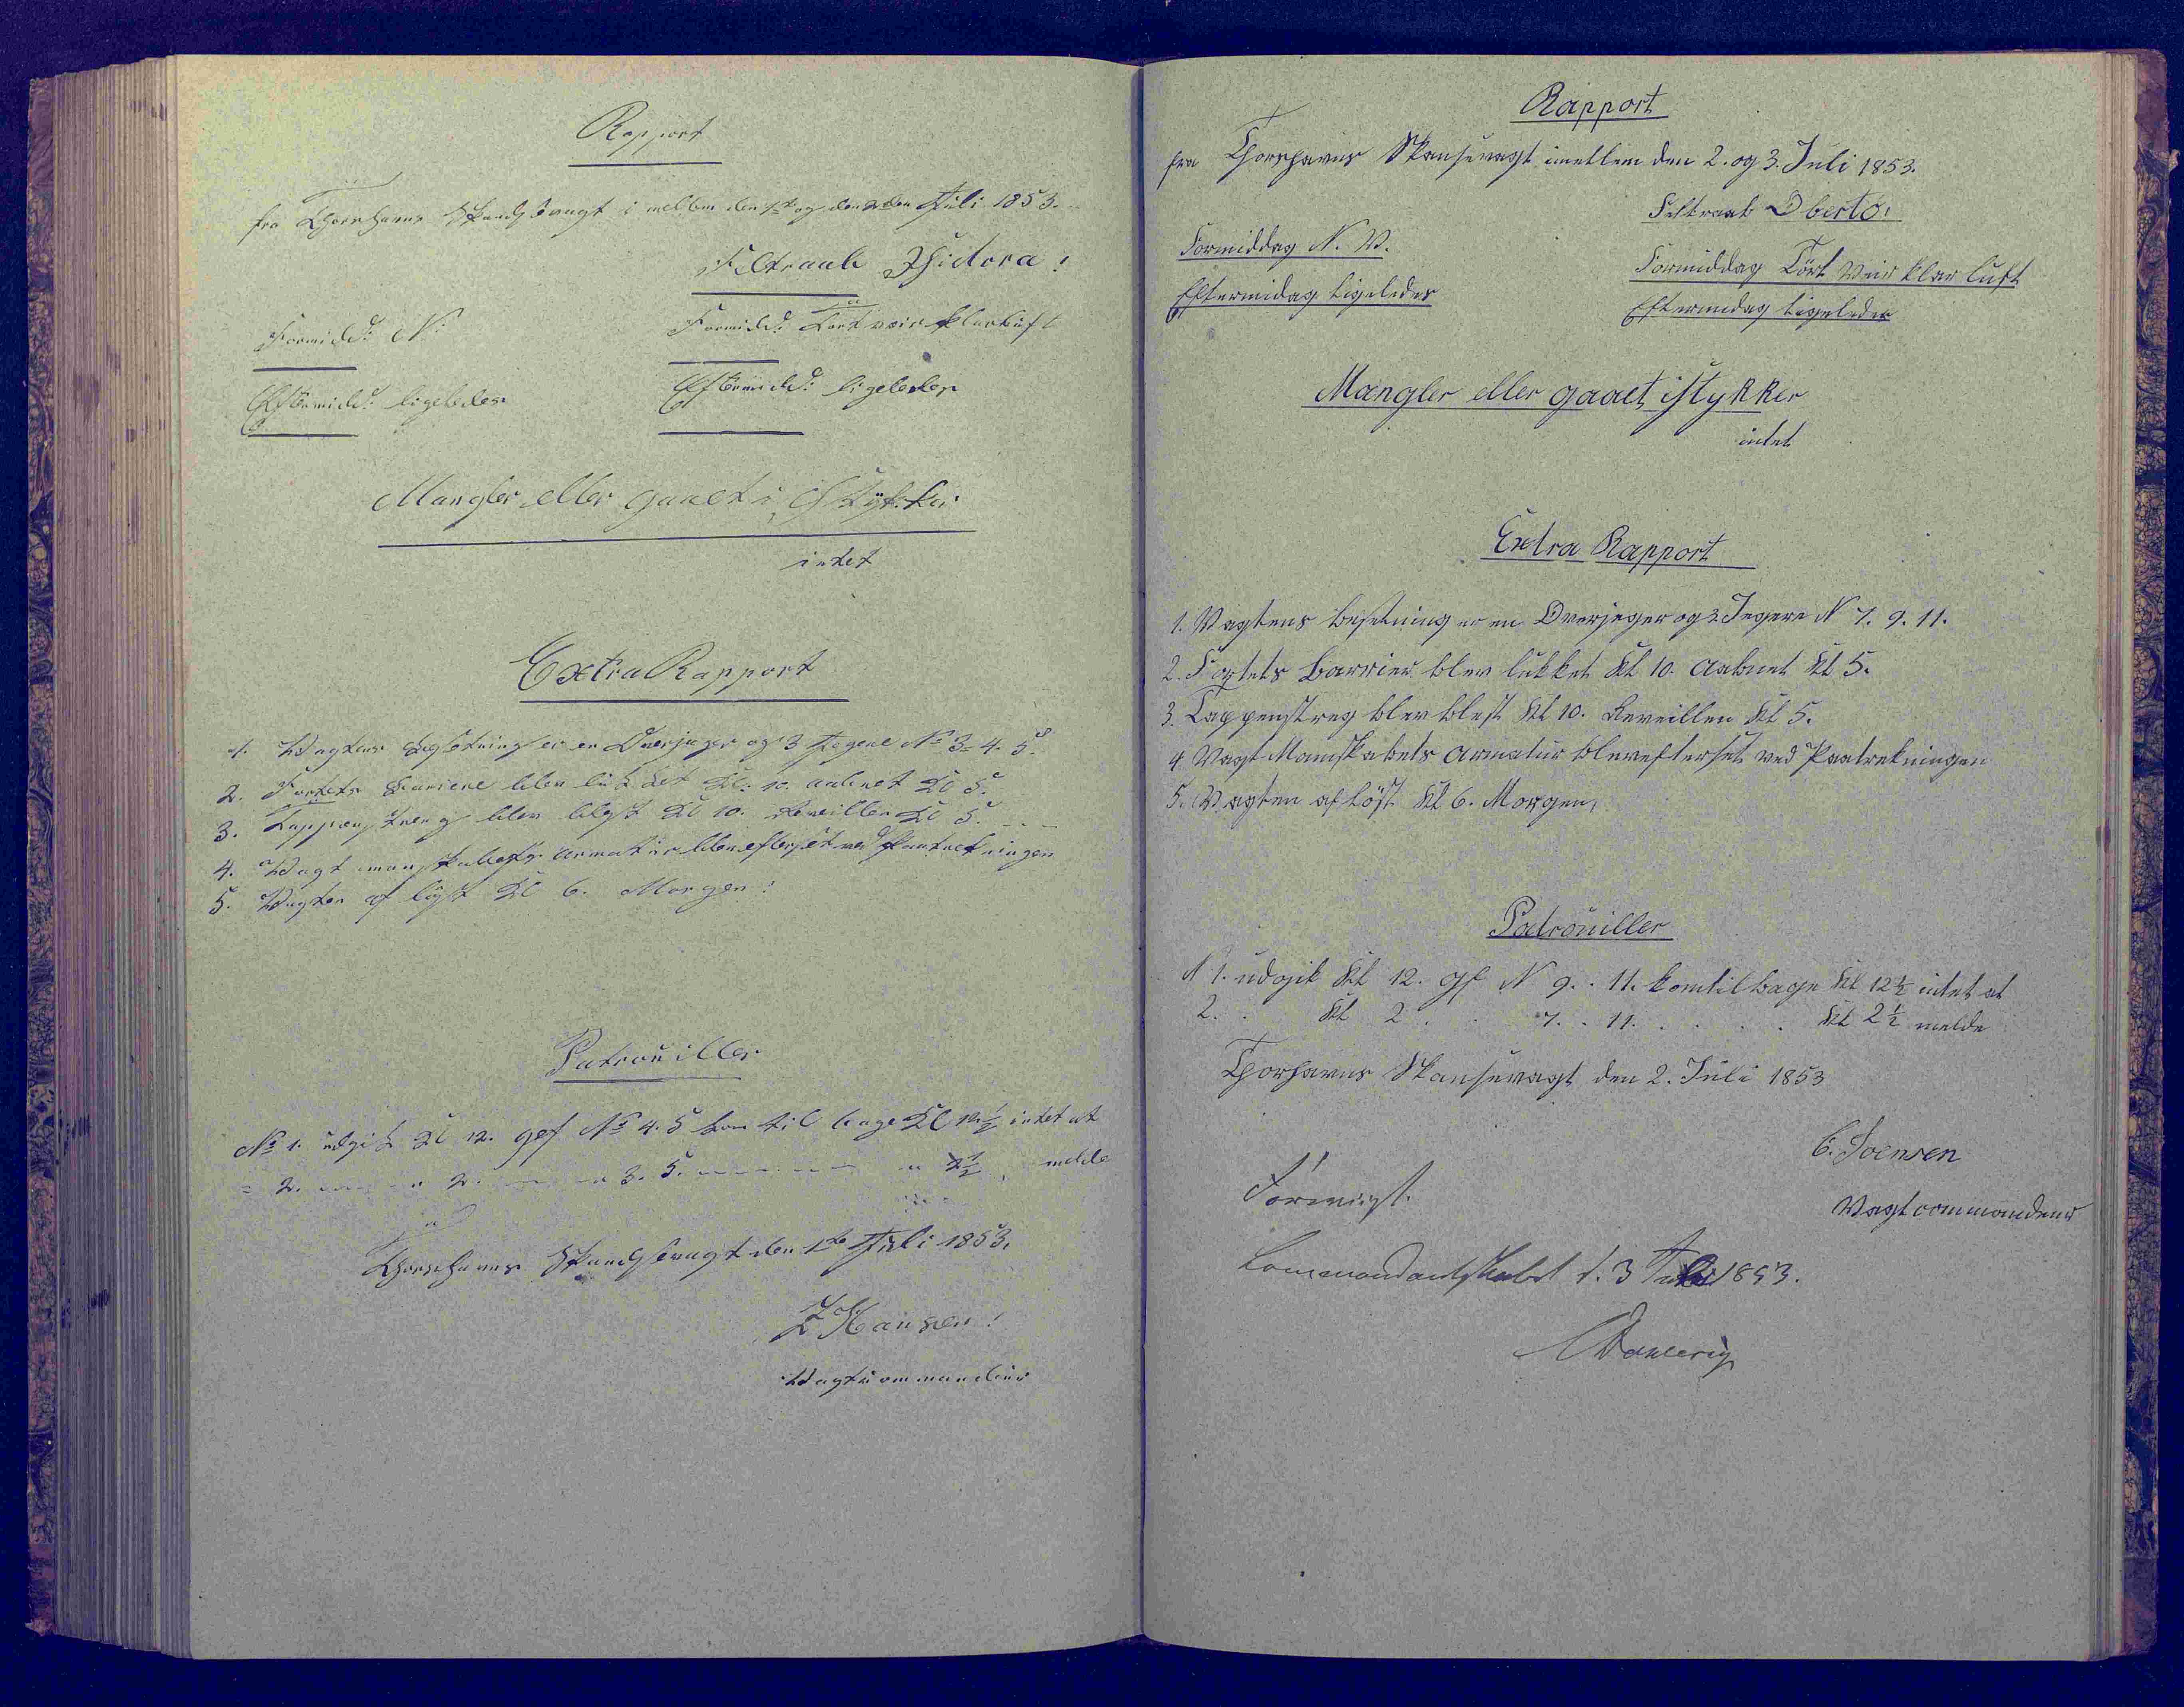 Rapport
fra Thorshavns Skandsevagt i mellem den 1ste og den 2den Juli 1853.
Feltraab Isidora!
Formidd: N:
Formidd: Tört veir klar luft
Eftermidd: ligeledes
Eftermidd: ligeledes
Mangler eller gaaet i Stykker
intet
Extra Rapport
1. Vagtens Besetning er en Overjæger og 3 Jegere No 3. 4. 5.
2. Fortets Bariere blev lukket Kl: 10. aabnet Kl 5.
3. Tappenstreg blev blest Kl 10. Reveillen Kl 5.
4. Vagt manskabets Armatür blev efterset ved Paatrekningen
5. Vagten af löst Kl 6. Morgen!
Patrouiller
No 1. udgik Kl 12. gef No 4. 5 kom til bage Kl 12½ intet at
= 2. — 2. — 3. 5. — 2½ melde
Thorshavns Skandsevagt den 1ste Juli 1853.
Z Hansen!
Vagtcommandeur
Rapport
fra Thorshavns Skansevagt imellem den 2. og 3. Juli 1853.
Feltraab Oberto!
Formiddag N. V.
Formiddag Tört Veir klar luft
Eftermidag ligeledes
Eftermidag ligeledes
Mangler eller gaaet istykker
intet
Extra Rapport
1. Vagtens besetning er en Overjeger og 3 Jegere N 7. 9. 11.
2. Fortets barrier blev lukket Kl 10. Aabnet Kl 5.
3. Tappenstreg blev blest Kl 10. Reveillen Kl 5.
4. Vagt-Manskabets Armatur blev efterset ved Paatrekningen
5. Vagten aflöst Kl 6. Morgen,
Patrouiller
N 1. udgik Kl 12. gf N 9. . 11. kom tilbage Kl 12½ intet at
2. . Kl 2 . . 7. . 11. . . . . Kl 2½ melde
Thorshavns Skansevagt den 2. Juli 1853
C. Joensen
Vagtcommandeur
Forevist.
Commandantskabet d. 3 Juli 1853.